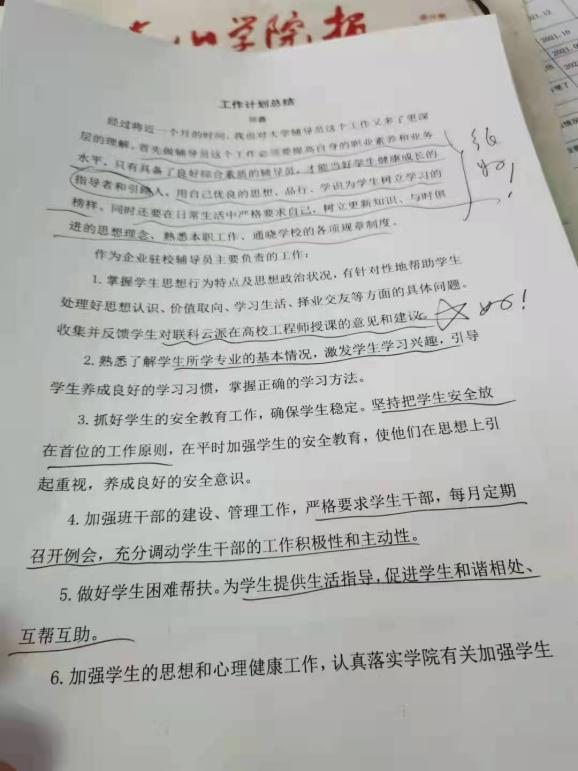 学院报
2021.12
2021.10
工作计划总结
经过将近一个月的时间，我也对大学辅导员这个工作又多了更深
层的理解，首先做辅导员这个工作必须要提高自身的职业素养和业务
水平，只有具备了良好综合素质的辅导员，才能当好学生健康成长的
指导者和引路人，用自己优良的思想、品行、学识为学生树立学习的
榜样。同时还要在日常生活中严格要求自己，树立更新知识、与时俱
进的思想理念、熟悉本职工作、通晓学校的各项规章制度。
很
好！
作为企业驻校辅导员主要负责的工作：
1.掌握学生思想行为特点及思想政治状况，有针对性地帮助学生
处理好思想认识、价值取向、学习生活、择业交友等方面的具体问题。
收集并反馈学生对联科云派在高校工程师授课的意见和建议。
好！
2.熟悉了解学生所学专业的基本情况，激发学生学习兴趣，引导
学生养成良好的学习习惯，掌握正确的学习方法。
3.抓好学生的安全教育工作，确保学生稳定。坚持把学生安全放
在首位的工作原则，在平时加强学生的安全教育，使他们在思想上引
起重视，养成良好的安全意识。
4.加强班干部的建设、管理工作，严格要求学生干部，每月定期
召开例会，充分调动学生干部的工作积极性和主动性。
5.做好学生困难帮扶。为学生提供生活指导，促进学生和谐相处、
互帮互助。
6.加强学生的思想和心理健康工作，认真落实学院有关加强学生